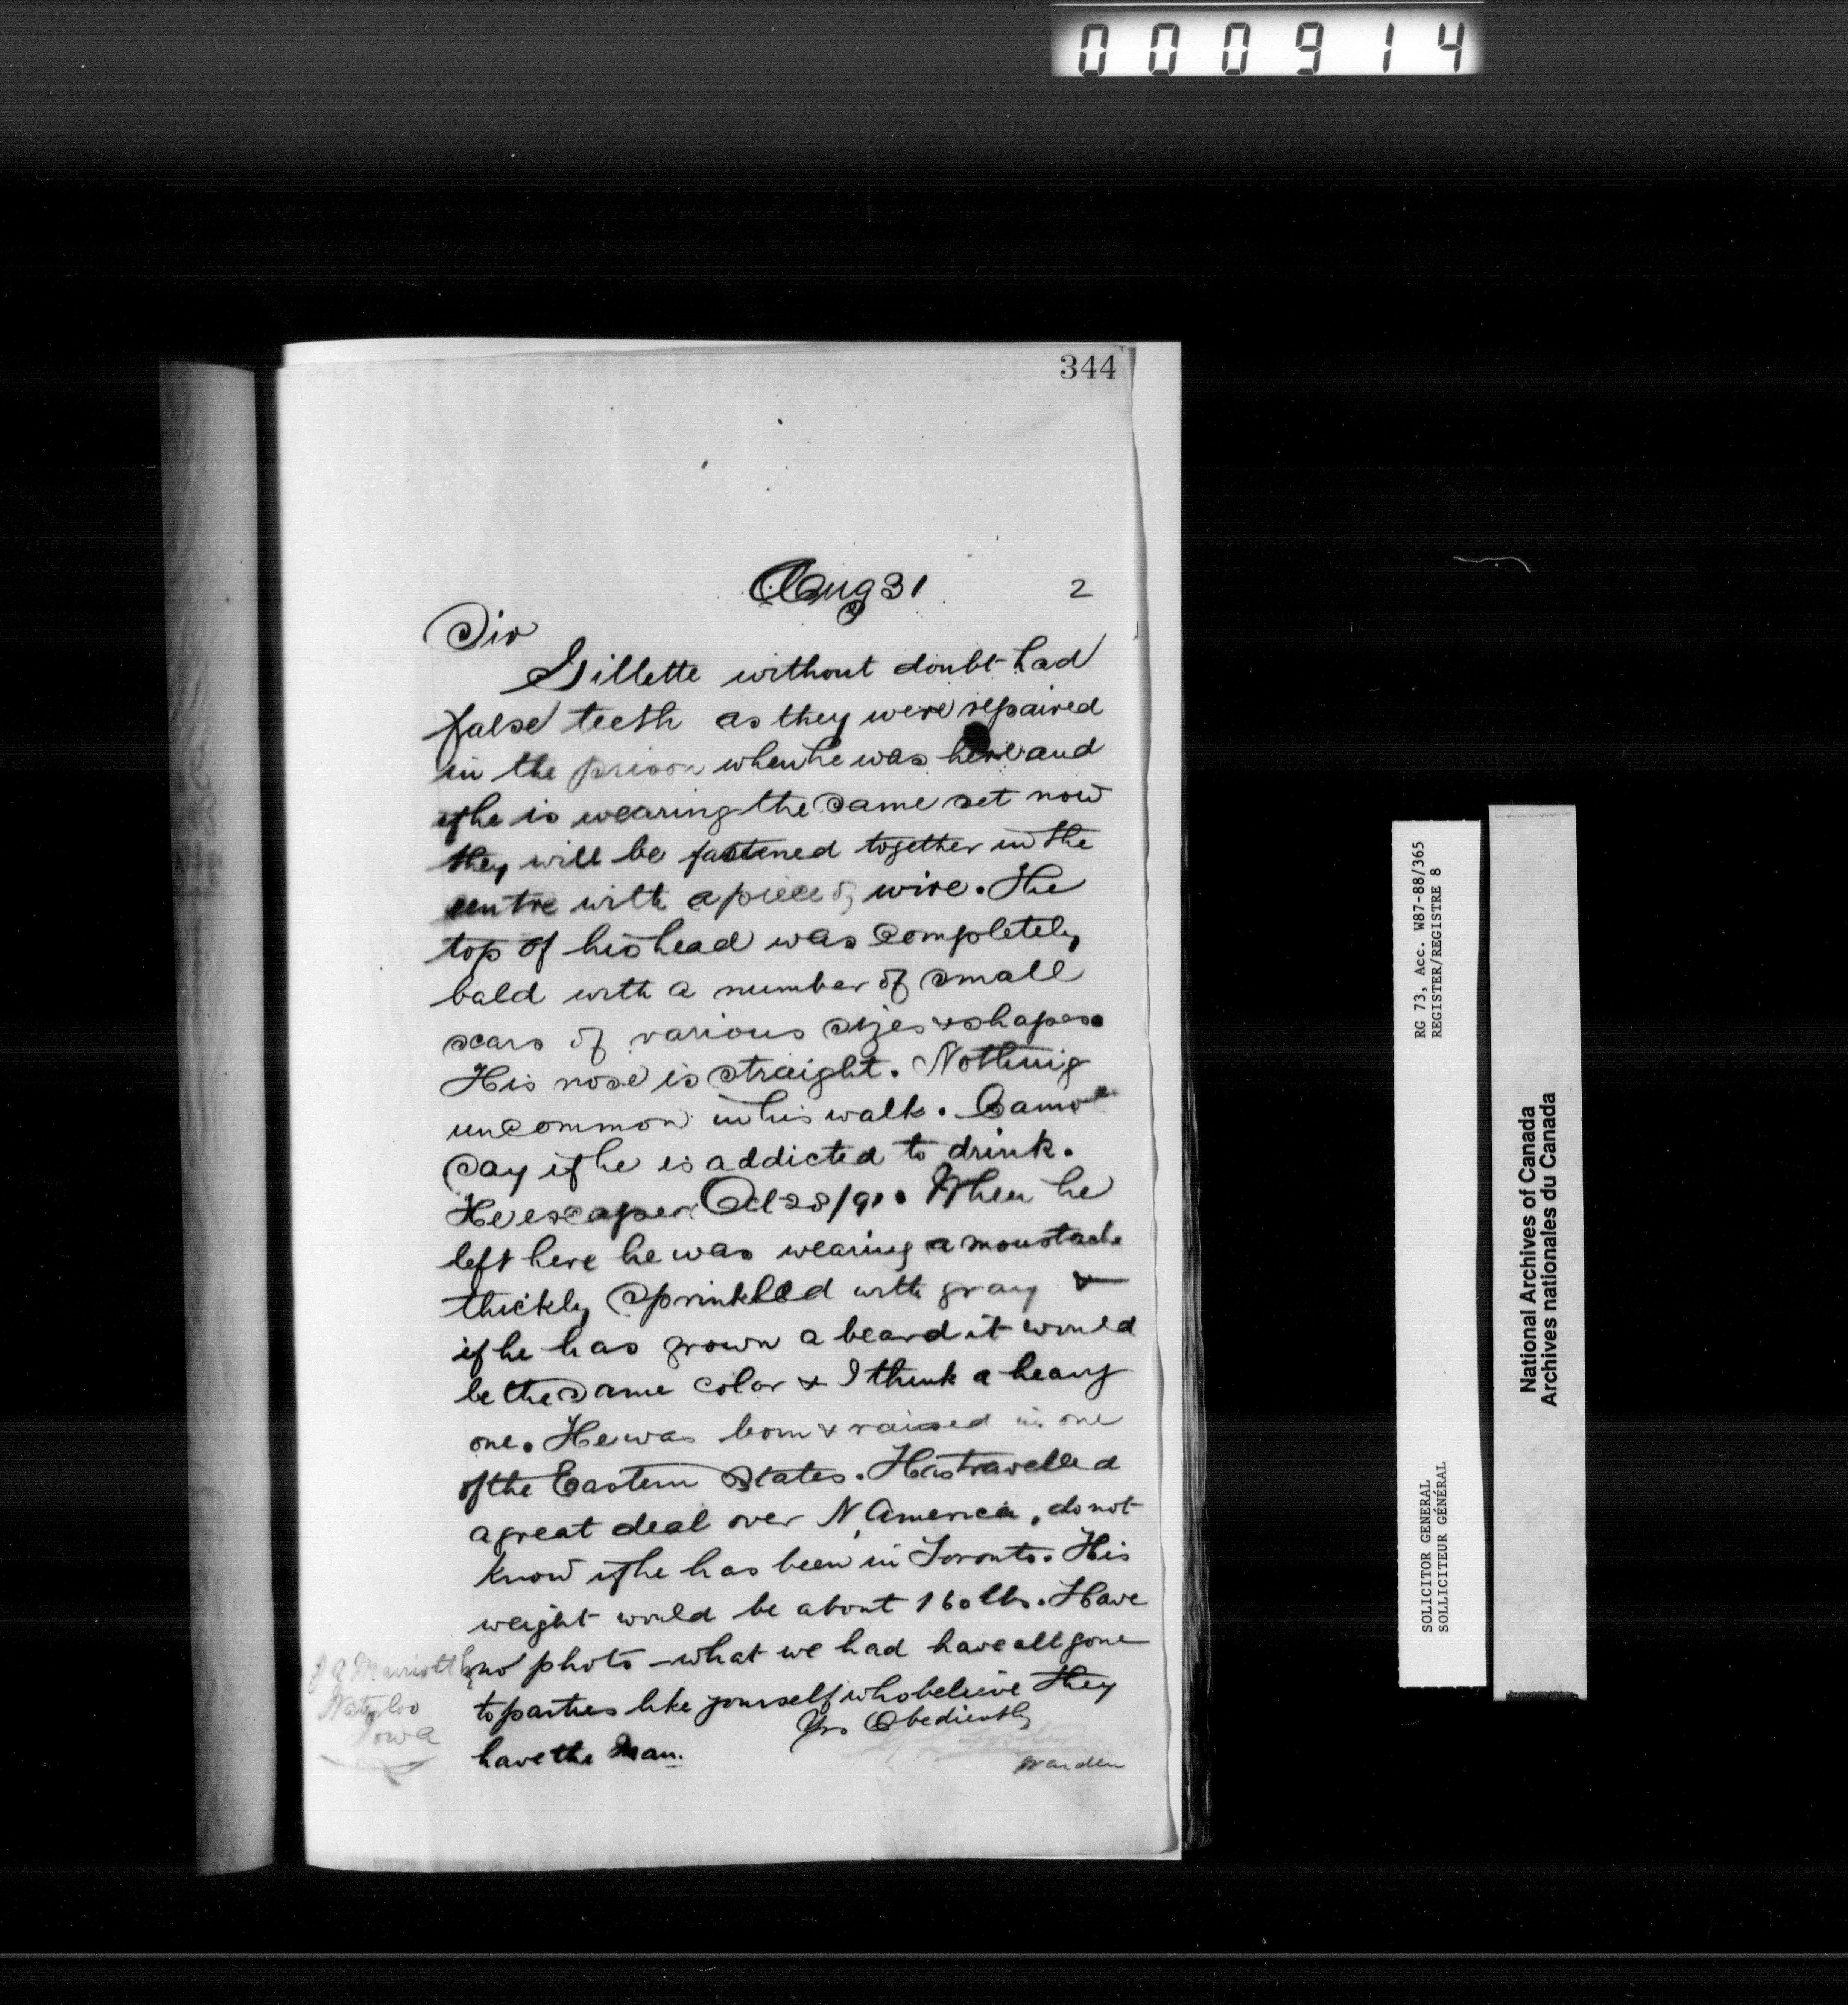 000914
344
Aug 31 2
Sir
Gillette without doubt had
false teeth as they were repaired
in the prison when he was here and
if he is wearing the same set now
they will be fastened together in the
centre with a piece of wire. The
top of his head was completely
bald with a number of small
scars of various sizes & shapes.
His nose is straight. Nothing
uncommon in his walk. Cannot
say if he is addicted to drink.
He escaped Oct 28/91. When he
left here he was wearing a moustache
thickly sprinkled with gray &
if he has grown a beard it would
be the same color & I think a heavy
one. He was born & raised in one
of the Eastern States. Has travelled
a great deal over N. America, do not
know if he has been in Toronto. His
weight would be about 160 lbs. Have
no photo - what we had have all gone
to parties like yourself who believe they
have the man.
Yrs Obediently
Foster
Warden
J A Marriott
Waterloo
Iowa
RG 73, Acc. W87-88/365
REGISTER/REGISTRE 8
SOLICITOR GENERAL
SOLLICITEUR GÉNÉRAL
National Archives of Canada
Archives nationales du Canada